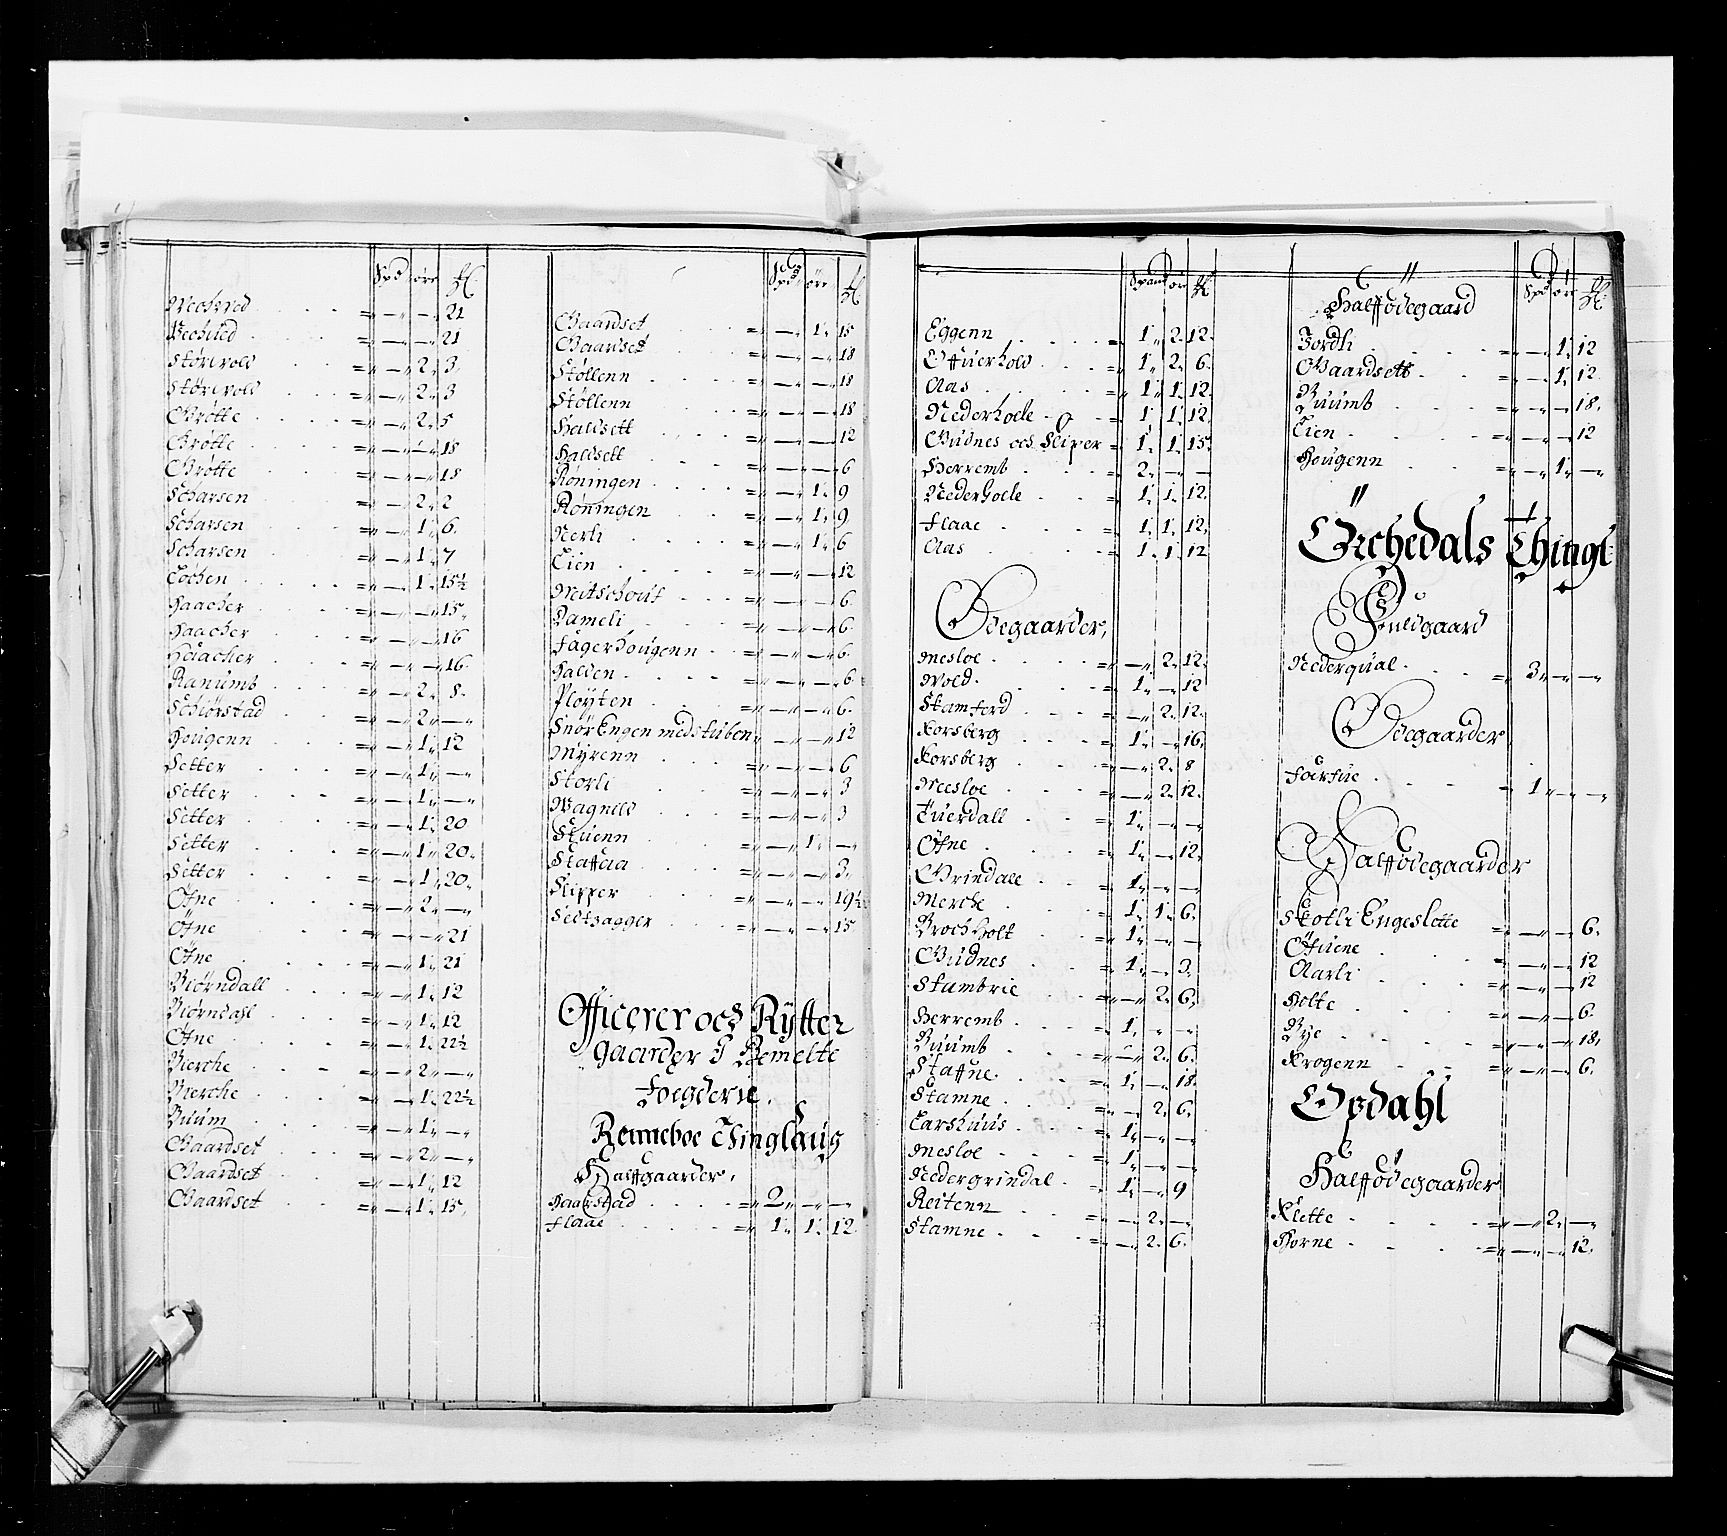 Spd öre
Wechved = — — 21
Wechved = — — 21
Störevold = — 2. 3.
Störevold = — 2. 3
Grötte = — 2. 5
Grötte = — — 18
Grötte = — — 18
Scharsen = — 2. 2
Scharsen = — 1. 6.
Scharsen = — 1. 7
Lochen = — 1. 15½
Haacher = — — 15.
Haacher = — — 16
Haacher = — — 16.
Ranumb = — 2. 8.
Schiörstad = — 2. —
Hougenn = — 1. 12
Setter = — 1. —
Setter = — 1. —
Setter = — 1. 20
Setter = — 1. 20.
Setter = — 1. 20.
Öfne = — 2. —
Öfne = — — 21
Öfne = — 1. 21
Biörndall = — 1. 12
Biörndahl = — 1. 12
Öfne = — 1. 22½
Bierche = — 2. —
Merche = — 1. 22½
Buum = — 1. —
Gaardset = — 2. —
Gaardset = — 1. 12
Gaardset = — 1. 15.
Spd öre
Gaardset = — 1. 15
Gaardset = — — 18
Stöllenn = — — 18
Stöllenn = — — 18
Haldsett = — — 12
Haldsett = — — 6
Röningen = — 1. 9
Röningen = — 1. 9
Nerli = — 1. 6
Lien = — — 12
= — — 6.
Dameli = — — 6.
Fagerhougenn = — — 6.
Halden = — — 6.
Ployten = — — 6.
Snör Engen med stuben — — 12
Myrenn = — — 6
Storli = — — 3
Wagnild = — — 3
Stuenn = — 1. —
Staffaa = — — 3.
Slipper = — — 19½
= — — 15
Officerer och Rytter
gaarder I Bemelte
Foegderie.
Renneboe Thinglaug
Halffgaarder.
Haarstad = 2. — —
Flaae = 1. 1. 12.
Spand ör
Eggenn = 1. 2. 12.
Offuerhold = 1. 2. 6.
Aas = 1. 1. 12.
Nederhoele = 1. 1. 12.
Gudnes och Sliper = 1. 1. 15.
Herremb = 2. — —
Nederhoele = 1. 1. 12.
Flaae = 1. 1. 12.
Aas = 1. 1. 12
Ödegaarder.
Mesloe = — 2. 12.
Wold = 1. — 12
Stamferd = — 2. 12.
Forsberg = 1. — 16.
Forsberg = — 2. 8
Meesloe = — 2. 12.
Tuerdall = 1. — —
Öfne = 1. — 12.
Grindall = 1. — —
Merche = 1. 1. 6.
Brochholt = 1. — —
Gudnes = 1. — 3.
Stambrie = — 2. 6.
Herremb = 1. — —
Buumb = — 2. 6.
Staffne = 1. — 18.
Stamne = — 2. 6.
Larshuus = 1. — —
Mesloe = 1. — —
Nedergrindal = 1. — 9
Reitenn = — 2. —
Stamne = — 2. 6.
Spd ör
Halfföedegaard
Jordli = — 1. 12
Gaardsett = — 1. 12.
Buumb = — — 18.
Lien = — — 12
Hougenn = — 1. —
Örchedals Thingl:
Fuldgaard
Nederqual = 3. — —
Ödegaarder
Faarfue = 1. — —
Halfödegaarder
Skotli Engeslette = — — 6.
Öfuene = — — 12
Aarli = — — 12
Holte = — — 6.
Rye = — — 18.
Krogenn = — — 6.
Opdahl
Halfödegaarder
Klette = — 2. —
Horne = — — 12.